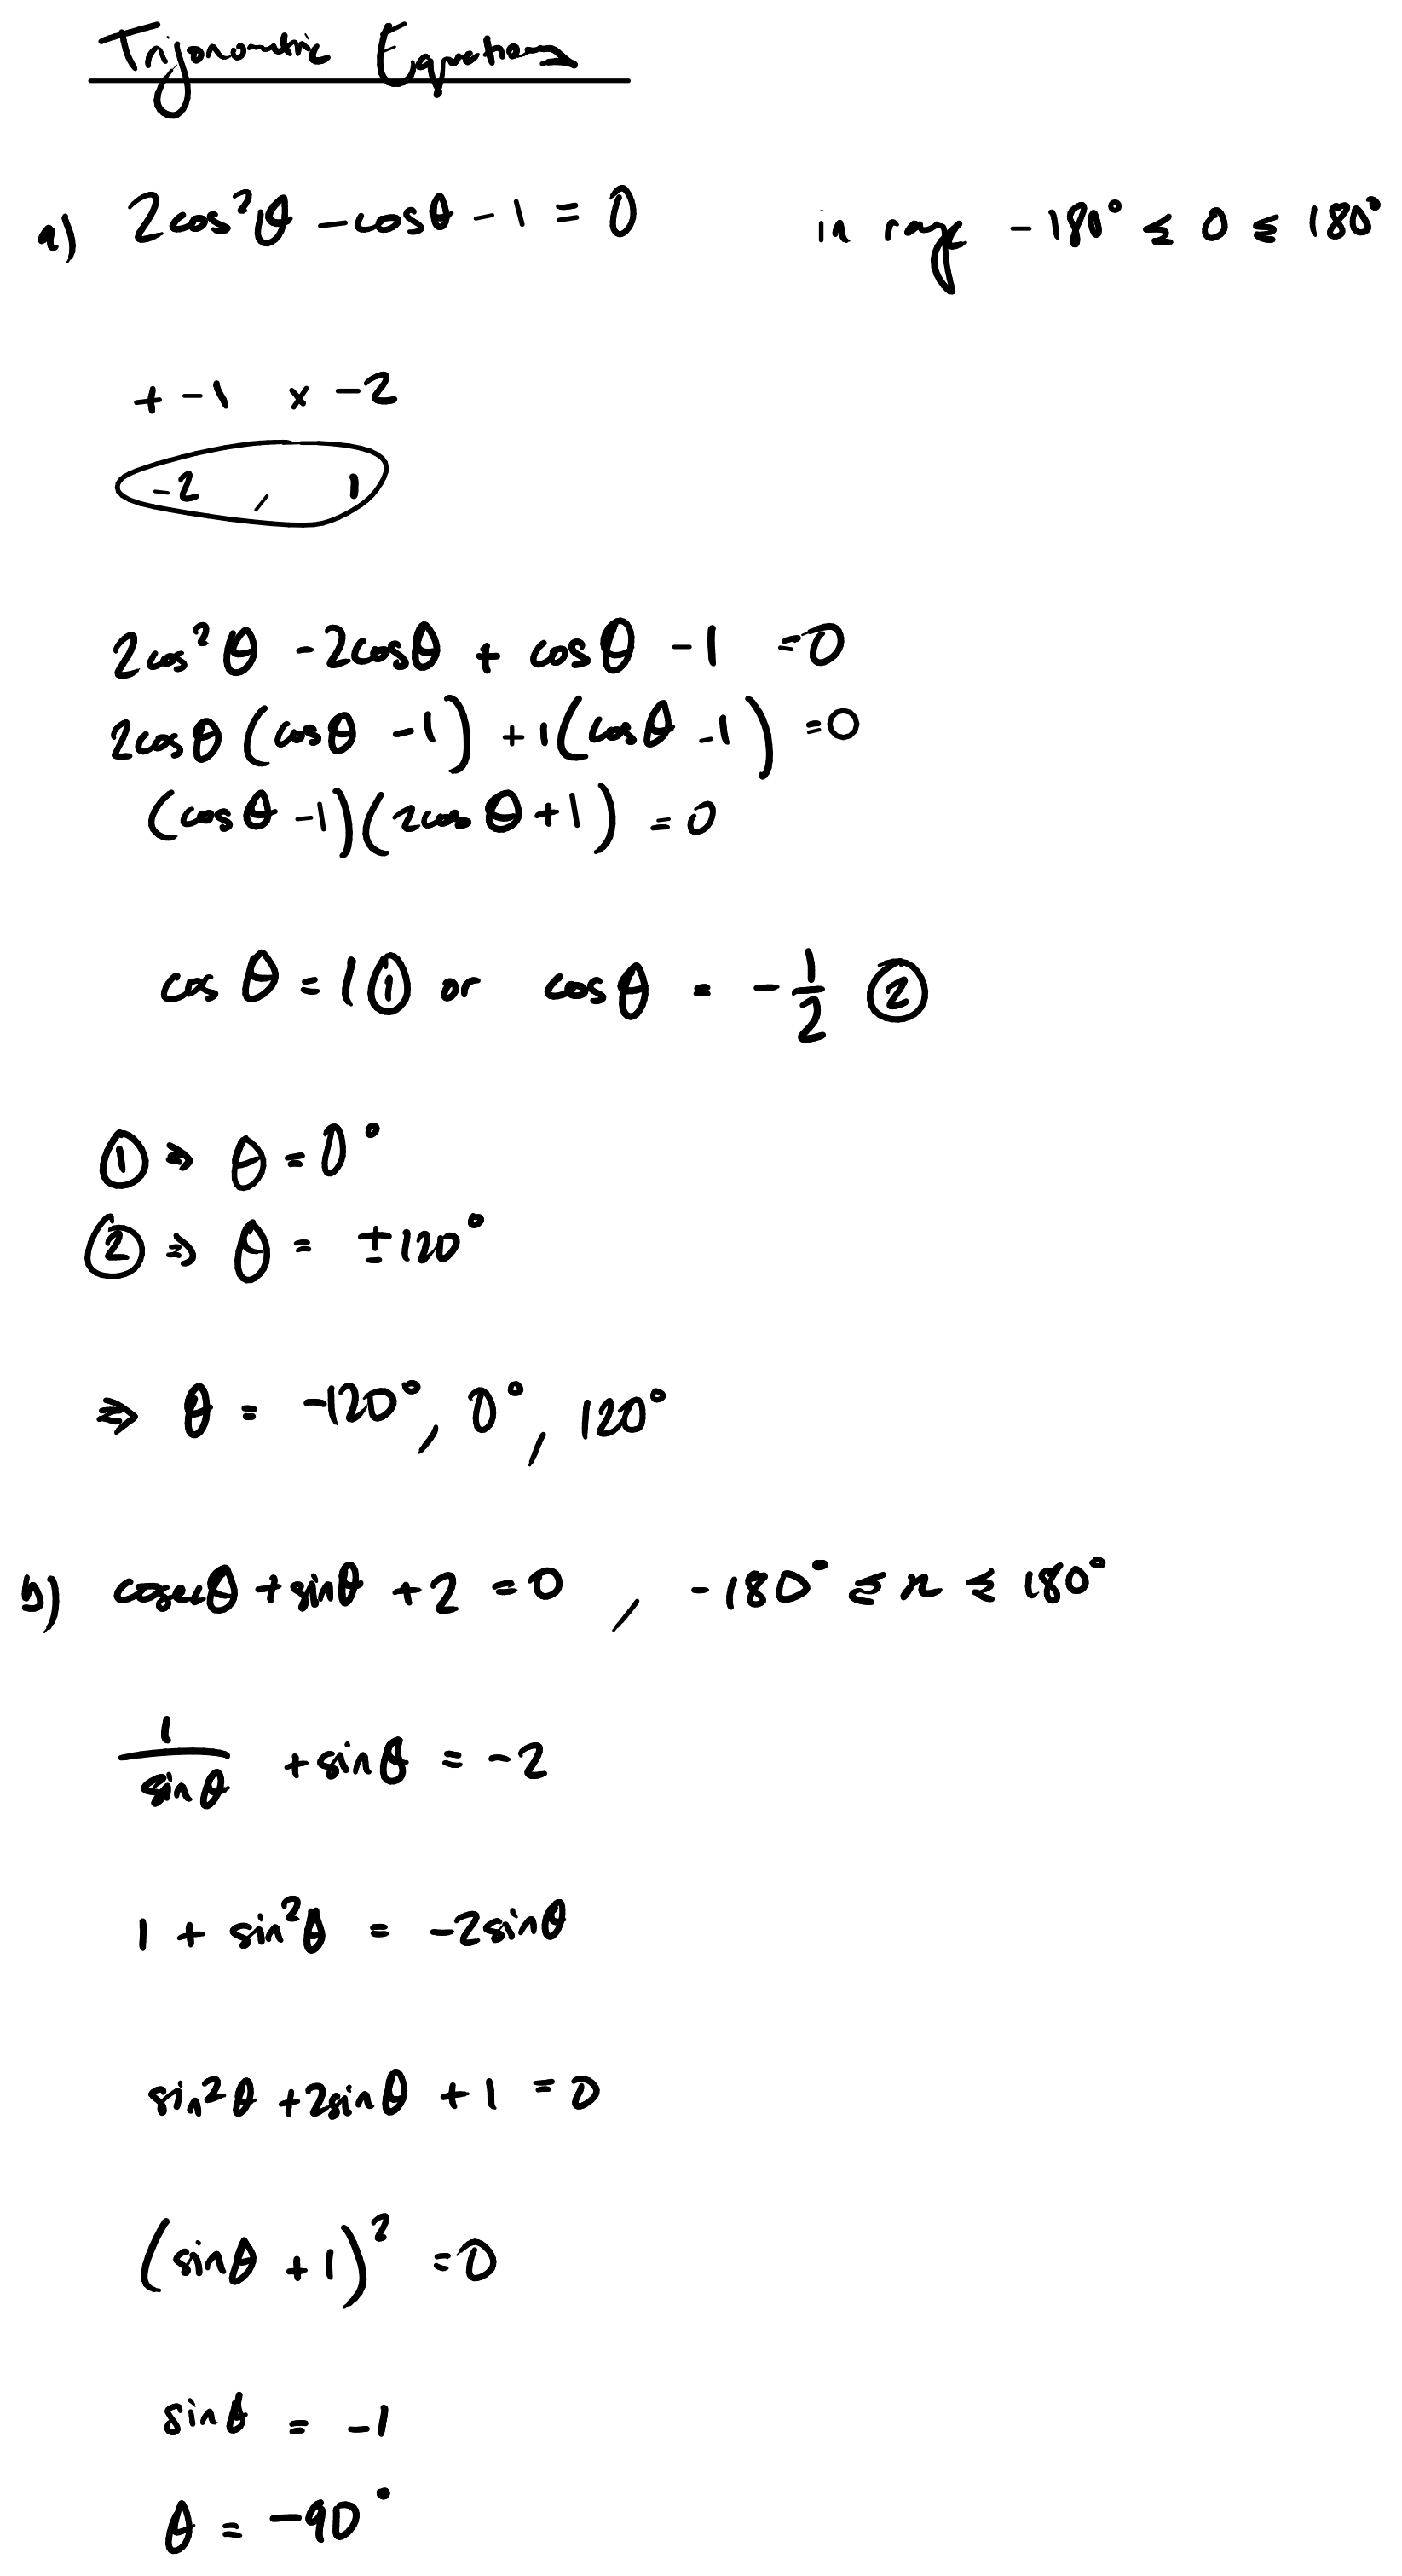 Trigonometric Equations
a) 2cos²θ - cosθ - 1 = 0 in range -180° ≤ θ ≤ 180°
+ -1 × -2
-2 , 1
2cos²θ - 2cosθ + cosθ - 1 = 0
2cosθ(cosθ - 1) + 1(cosθ - 1) = 0
(cosθ - 1)(2cosθ + 1) = 0
cosθ = 1 ① or cosθ = -1/2 ②
① ⇒ θ = 0°
② ⇒ θ = ±120°
⇒ θ = -120°, 0°, 120°
b) cosecθ + sinθ + 2 = 0 , -180° ≤ x ≤ 180°
1/sinθ + sinθ = -2
1 + sin²θ = -2sinθ
sin²θ + 2sinθ + 1 = 0
(sinθ + 1)² = 0
sinθ = -1
θ = -90°